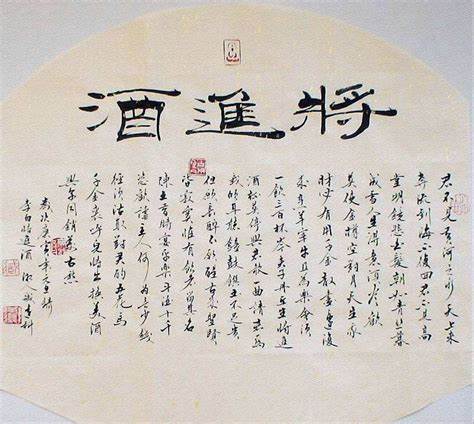 將進酒
君不見黃河之水天上來
奔流到海不復回君不見高
堂明鏡悲白髮朝如青絲暮
成雪人生得意須盡歡
莫使金樽空對月天生我
材必有用千金散盡還復
來烹羊宰牛且為樂會須
一飲三百杯岑夫子丹丘生將進
酒杯莫停與君歌一曲請君為
我傾耳聽鐘鼓饌玉不足貴
但願長醉不願醒古來聖賢
皆寂寞惟有飲者留其名
陳王昔時宴平樂斗酒十千
恣歡謔主人何為言少錢
徑須沽取對君酌五花馬
千金裘呼兒將出換美酒
與爾同銷萬古愁
歲次
李白將進酒